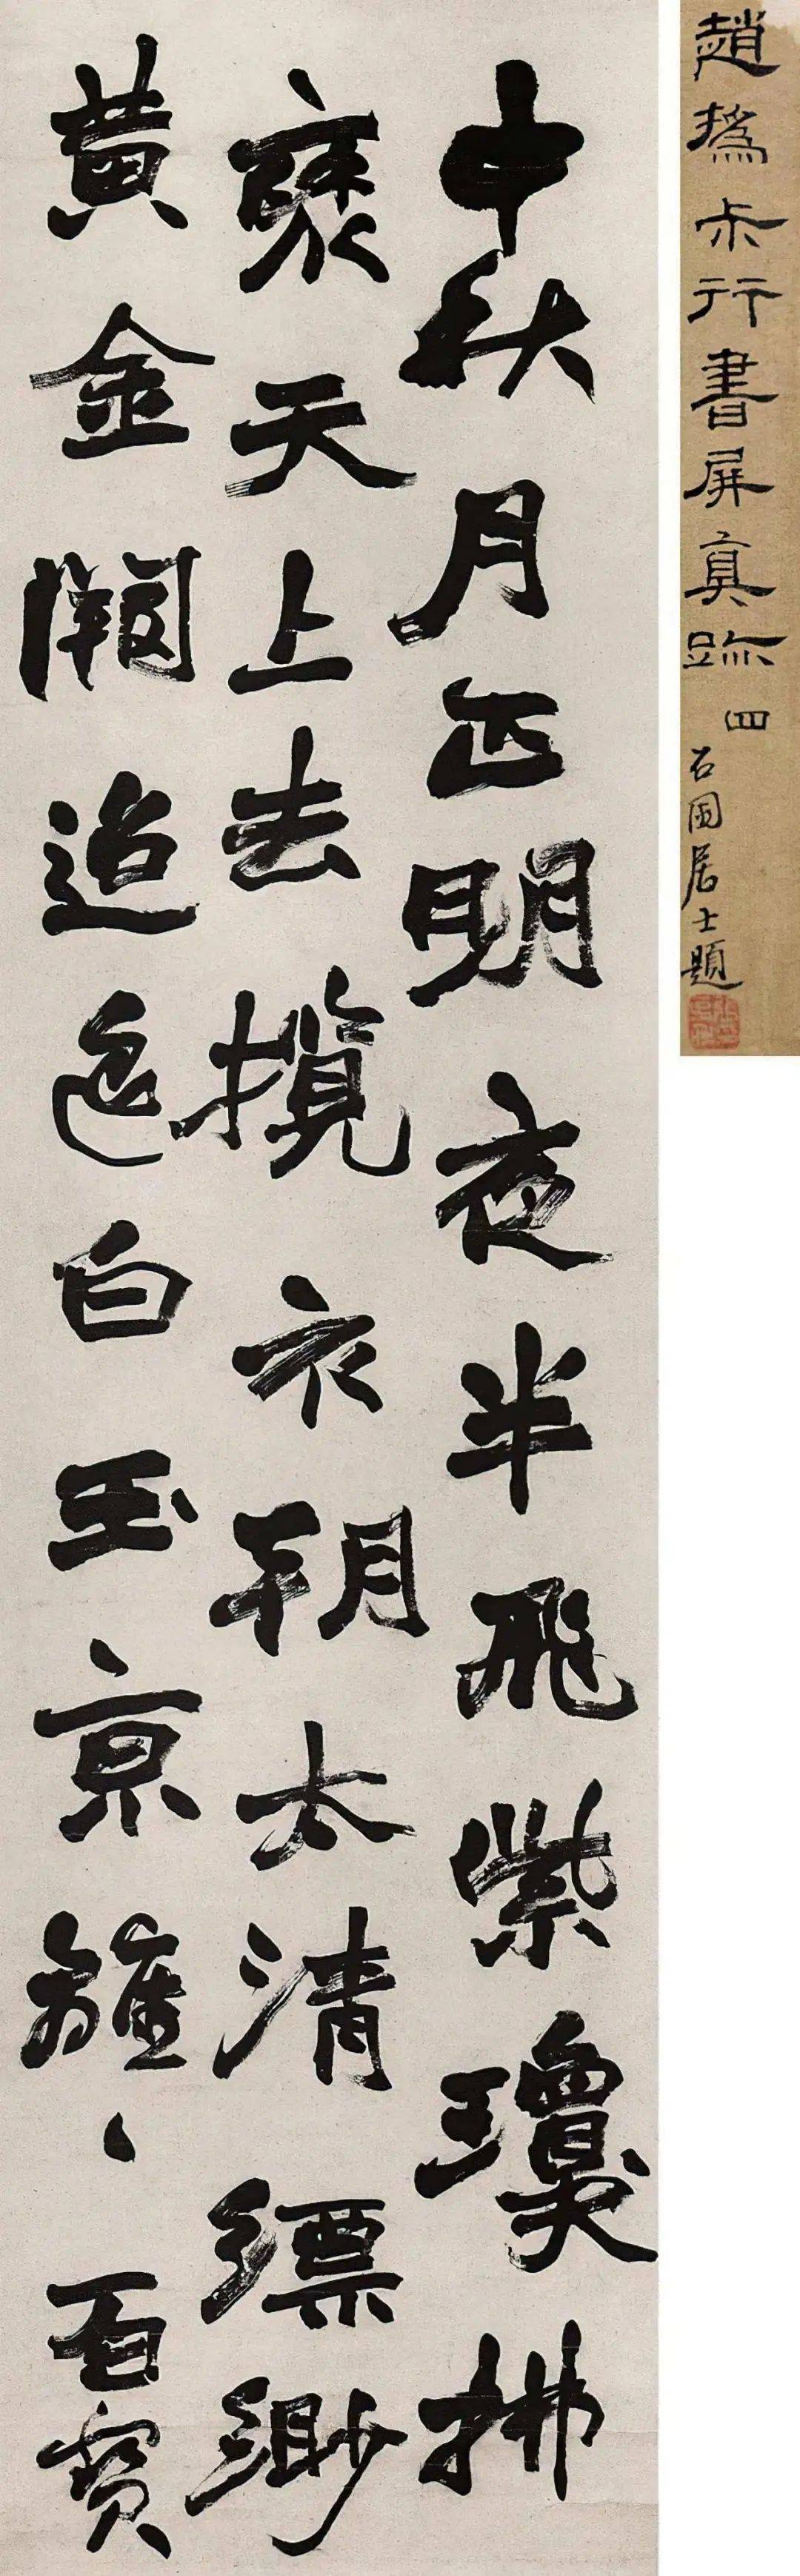 趙撝尗行書屏真跡 四
石園居士題
中秋月正明夜半飛紫瓊拂
褎天上去攬衣朝太清縹緲
黃金闕迢迢白玉京離〻百寶